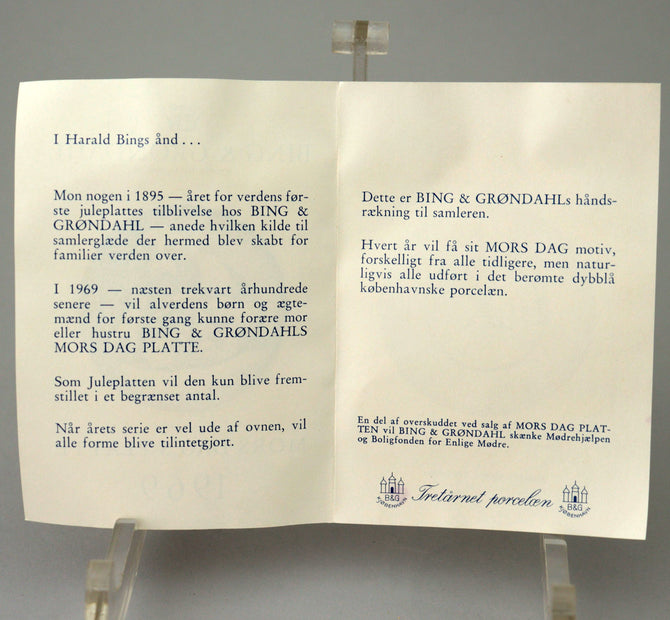 I Harald Bings ånd...
Mon nogen i 1895 — året for verdens før-
ste juleplattes tilblivelse hos BING &
GRØNDAHL — anede hvilken kilde til
samlerglæde der hermed blev skabt for
familier verden over.
I 1969 — næsten trekvart århundrede
senere — vil alverdens børn og ægte-
mænd for første gang kunne forære mor
eller hustru BING & GRØNDAHLS
MORS DAG PLATTE.
Som Juleplatten vil den kun blive frem-
stillet i et begrænset antal.
Når årets serie er vel ude af ovnen, vil
alle forme blive tilintetgjort.
Dette er BING & GRØNDAHLs hånds-
rækning til samleren.
Hvert år vil få sit MORS DAG motiv,
forskelligt fra alle tidligere, men natur-
ligvis alle udført i det berømte dybblå
københavnske porcelæn.
En del af overskuddet ved salg af MORS DAG PLAT-
TEN vil BING & GRØNDAHL skænke Mødrehjælpen
og Boligfonden for Enlige Mødre.
B&G
KJØBENHAVN
Tretårnet porcelæn
B&G
KJØBENHAVN